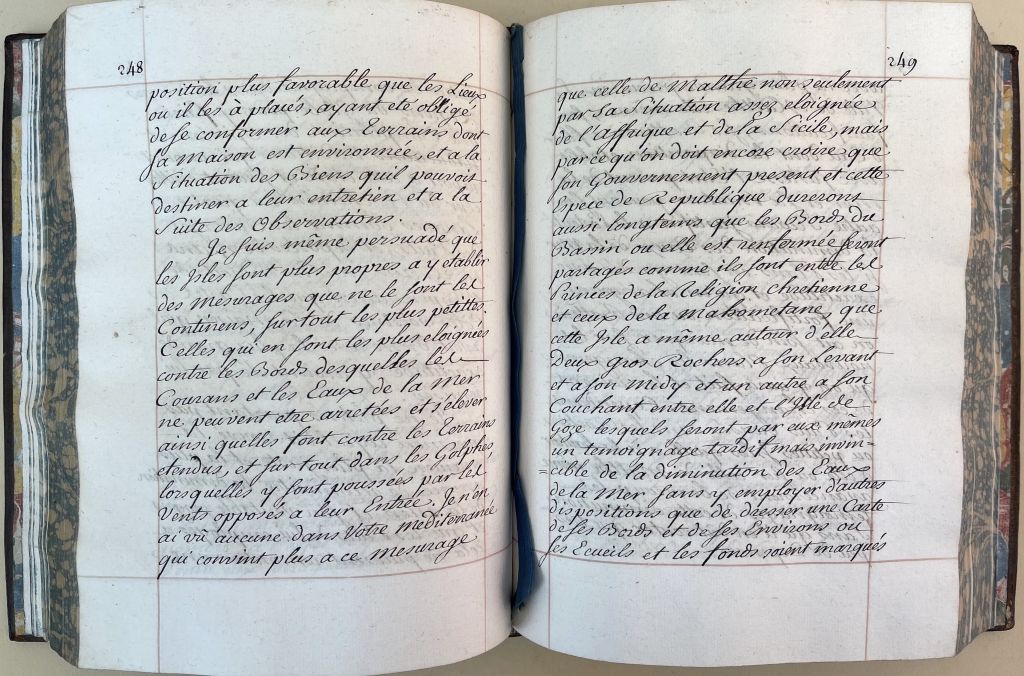 248
position plus favorable que les Lieux
ou il les à placés, ayant eté obligé
de se conformer aux Terrains dont
sa maison est environnée, et a la
Situation des Biens quil pouvoit
destiner a leur entretien et a la
Suite des Observations.
Je suis même persuadé que
les Isles sont plus propres a y etablir
des mesurages que ne le sont les
Continens, surtout les plus petittes.
Celles qui en sont les plus eloignées
contre les Bords desquelles les
Courans et les Eaux de la mer
ne peuvent etre arretées et s'elever
ainsi quelles font contre les Terrains
etendus, et sur tout dans les Golphes,
lorsquelles y sont poussées par les
Vents opposés a leur Entrée. Je n'en
ai vû aucune dans Votre mediterranée
qui convint plus a ce mesurage
249
que celle de Malthe non seulement
par sa Situation assez eloignée
de l'affrique et de la Sicile, mais
parce qu'on doit encore croire que
son Gouvernement present et cette
Espece de Republique dureront
aussi longtems que les Bords du
Bassin ou elle est renfermée seront
partagés comme ils sont entre les
Princes de la Religion chretienne
et ceux de la mahometane, que
cette Isle a même autour d'elle
Deux gros Rochers a son Levant
et a son Midy et un autre a son
Couchant entre elle et l'Isle de
Goze lesquels seront par eux mêmes
un temoignage tardif mais invin=
=cible de la diminution des Eaux
de la Mer sans y employer d'autres
dispositions que de dresser une Carte
de ses Bords et de ses Environs ou
ses Ecueils et les fonds soient marqués